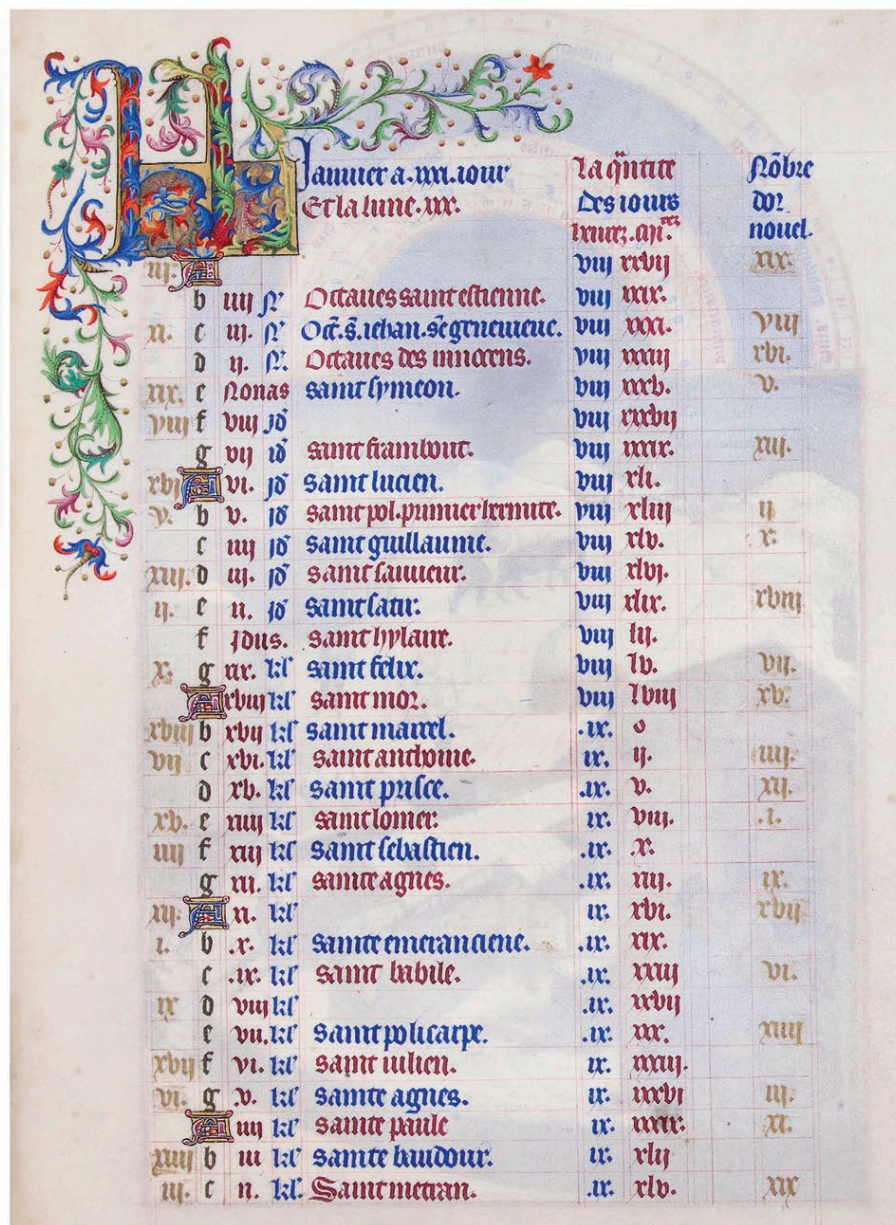 Januier a .xxxi. iour La q̃ntite Nõbre
Et la lune .xxx. des iours dor
heures. mi̅tes nouel.
iij. A viij xxvij xix.
b iiij Nᵒ Octaues saint estienne. viij xxix.
xi. c iij. Nᵒ Oct̃. s̃. iehan. sᵗᵉ geneuieue. viij xxxi. viij
d ij. Nᵒ. Octaues des innocens. viij xxxiij xvi.
xix. e Nonas saint symeon. viij xxxv. v.
viij f viij id̃ viij xxxvij
g vij id̃ saint frambout. viij xxxix. xiij.
xvj A vi. id̃ saint lucien. viij xli.
v. b v. id̃ saint pol. pumier hermite. viij xliij ij
c iiij id̃ saint guillaume. viij xlv. x.
xiij. d iij. id̃ saint sauueur. viij xlvj.
ij. e ii. id̃ saint satir. viij xlix. xviij
f Idus. saint hylaire. viij lij.
x. g xix. kl̃ saint felix. viij lv. vij.
A xviij kl̃ saint mor. viij lviij xv.
xviij b xvij kl̃ saint marcel. .ix. o
vij c xvi. kl̃ saint anthoine. ix. ij. iiij.
d xv. kl̃ saint prisce. .ix. v. xij.
xv. e xiiij kl̃ saint lomer. ix. viij. .i.
iiij f xiij kl̃ saint sebastien. .ix. .x.
g xii. kl̃ sainte agnes. .ix. xiij. ix.
xij. A xi. kl̃ ix. xvi. xvij
i. b .x. kl̃ sainte emeranciene. .ix. xix.
c .ix. kl̃ saint babile. .ix. xxiij vi.
ix d viij kl̃ .ix. xxvij
e vii. kl̃ saint policarpe. .ix. xxx. xiiij
xvij f vi. kl̃ saint iulien. ix. xxxiij.
vi. g .v. kl̃ sainte agnes. ix. xxxvi iij.
A iiij kl̃ sainte paule ix. xxxix. xi.
xiiij b iii kl̃ sainte baudour. ix. xlij
iij. c ii. kl̃. Saint metran. .ix. xlv. xix